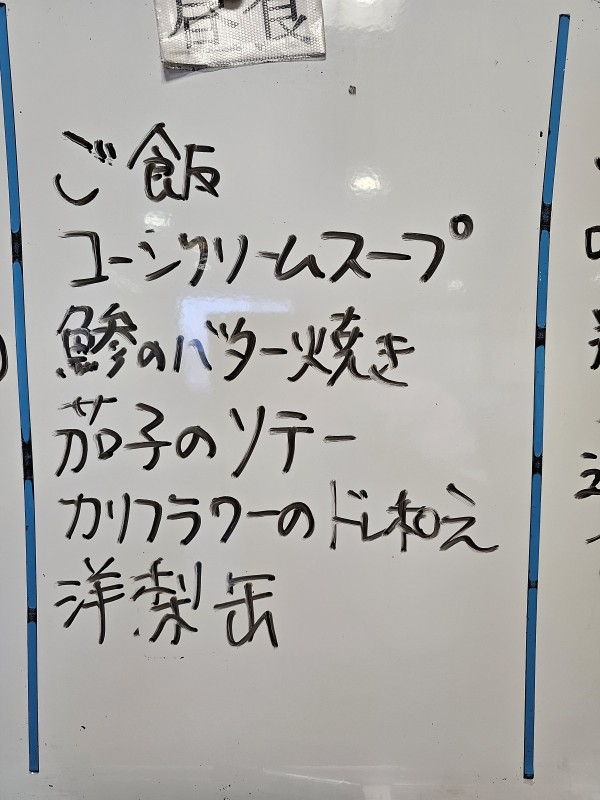 昼食
ご飯
コーンクリームスープ
鯵のバター焼き
茄子のソテー
カリフラワーのドレ和え
洋梨缶